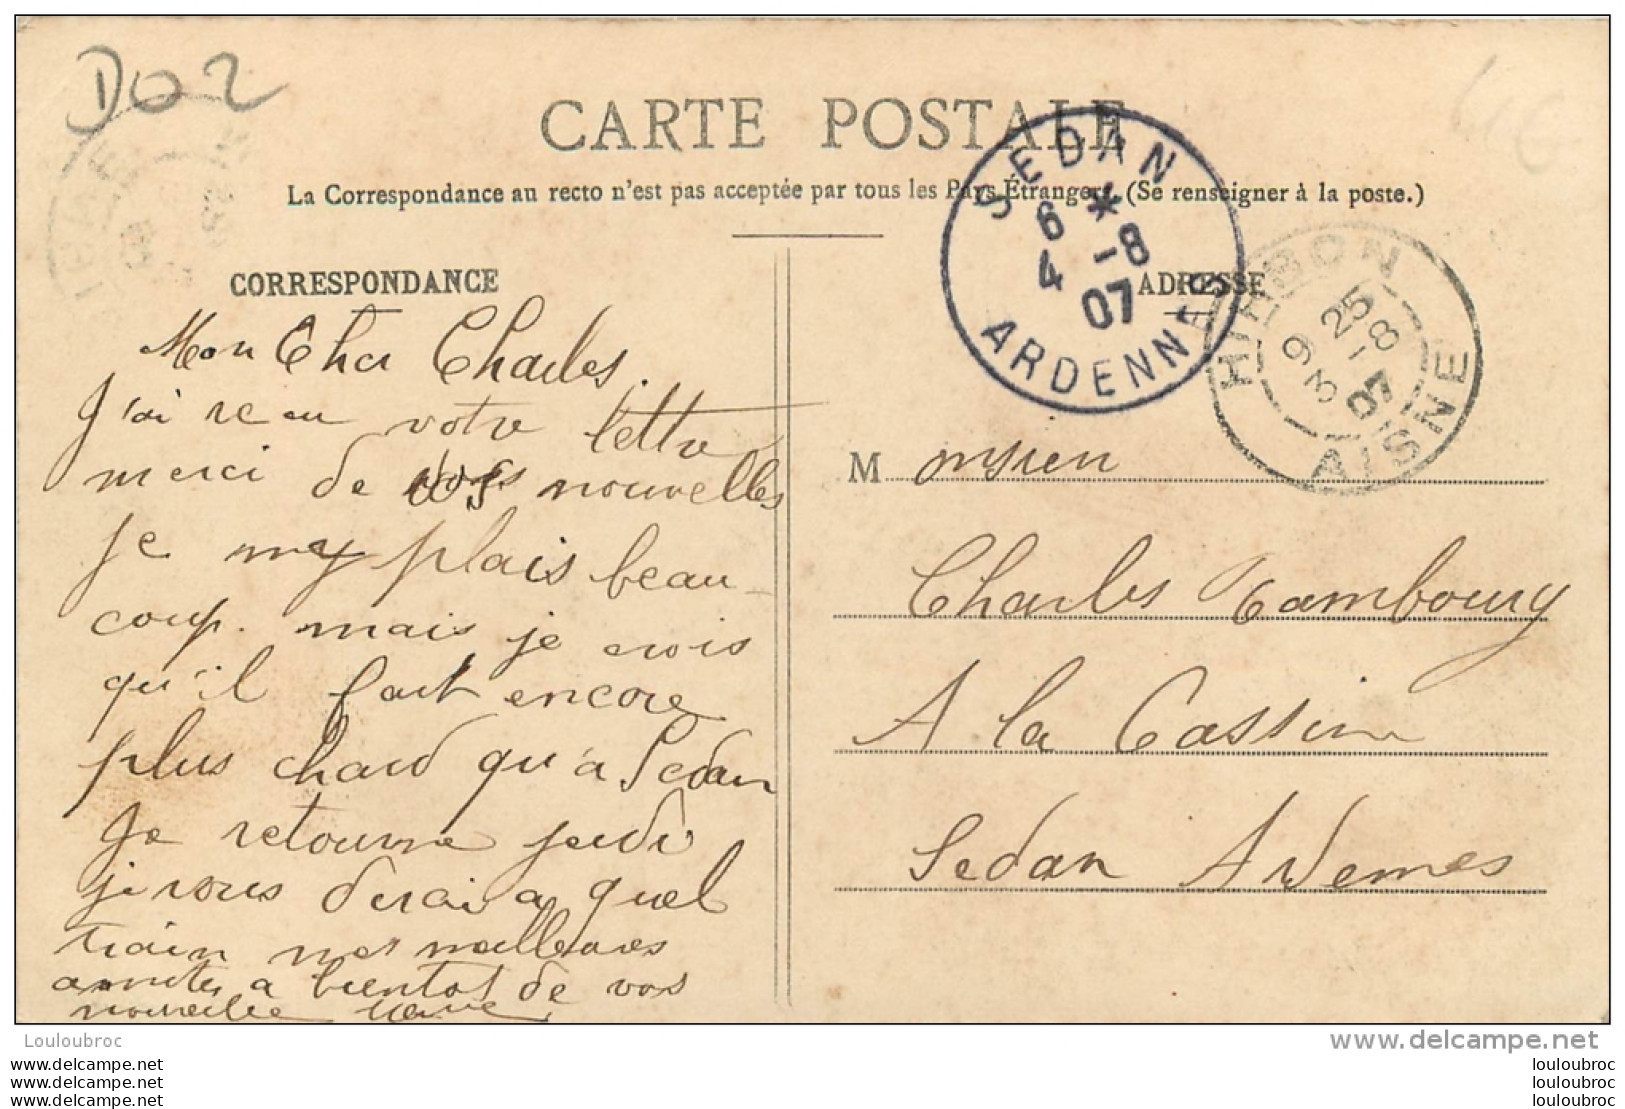 D02
CARTE POSTALE
La Correspondance au recto n'est pas acceptée par tous les Pays Étrangers. (Se renseigner à la poste.)
SEDAN
6 *
4 -8
07
ARDENNES
HIRSON
9 25
3 -8
07
AISNE
CORRESPONDANCE
Mon Cher Charles.
J'ai recu votre lettre
merci de vos nouvelles
je my plais beau-
coup. mais je crois
qu'il fait encore
plus chaud qu'a Sedan
Je retourne jeudi
je vous dirai a quel
train mes meilleures
amities a bientot de vos
nouvelle
ADRESSE
M onsieu
Charles Camboury
A la Cassine
Sedan Ardennes
Louloubroc
www.delcampe.net
louloubroc
louloubroc
louloubroc
louloubroc
louloubroc
louloubroc